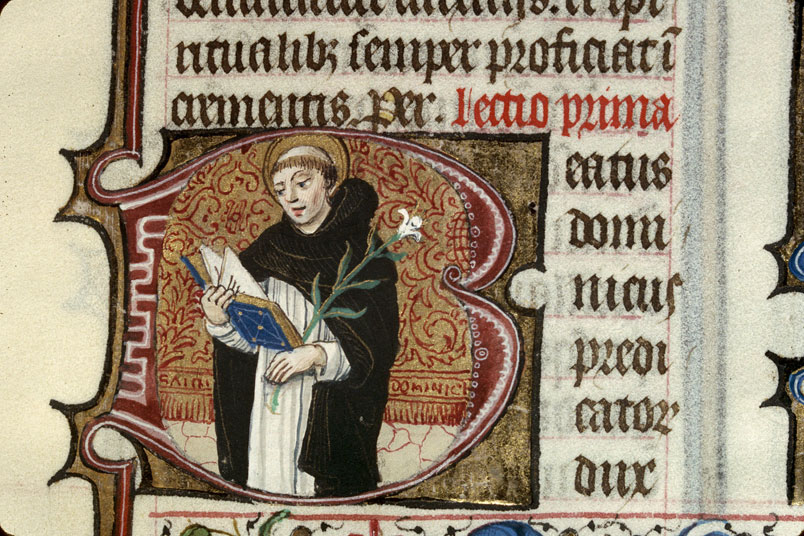 ritualibz semper proficiat i
crementis. Per. Lectio prima
B
eatus
domi
nicus
predi
cator
dux
DOMINIC